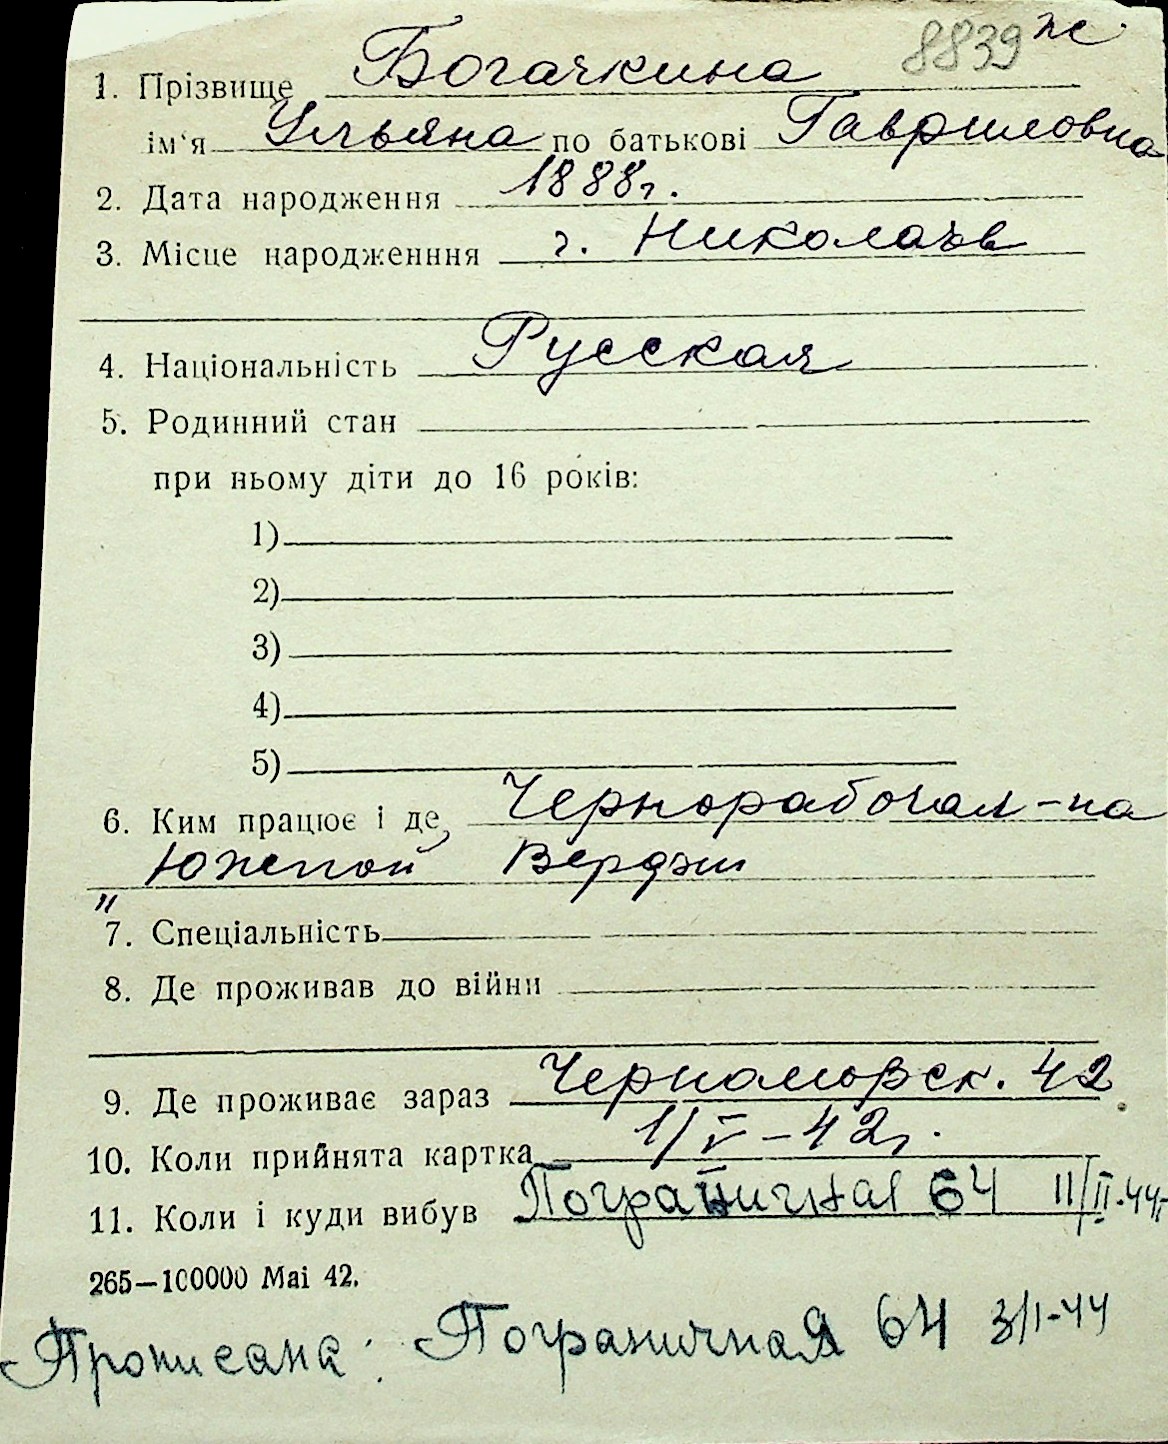 8839 ж
1. Прізвище Богачкина
ім'я Ульяна по батькові Гавриловна
2. Дата народження 1888 г.
3. Місце народженння г. Николаев
4. Національність Русская
5. Родинний стан
при ньому діти до 16 років:
1)
2)
3)
4)
5)
6. Ким працює і де, Чернорабочая - на
Южной Верфи
"
7. Спеціальність
8. Де проживав до війни
9. Де проживає зараз Черноморск. 42
10. Коли прийнята картка 1/V - 42 г.
11. Коли і куди вибув Пограничная 64 11/II-44 г.
265—100000 Mai 42.
Прописана: Пограничная 64 3/I-44